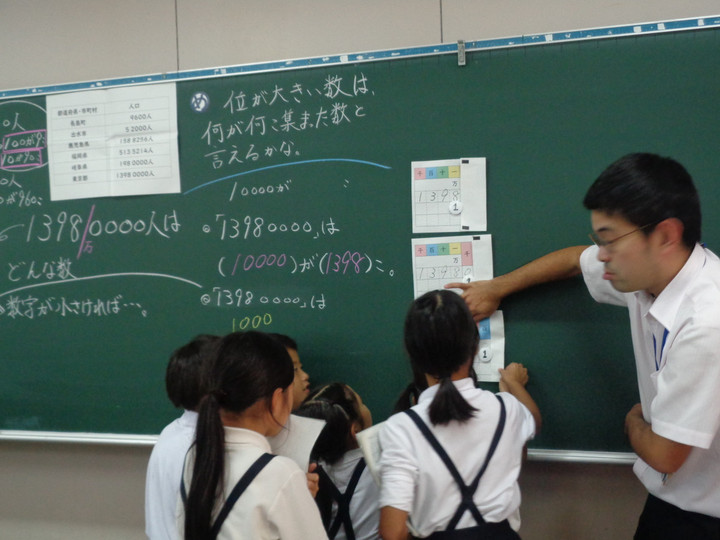 人
100が9
人
が960こ
1398/0000人は
万
どんな数
数字が小さければ…。
都道府県・市町村 人口
長島町 9600人
出水市 5 2000人
鹿児島県 158 8256人
福岡県 513 5214人
岐阜県 198 0000人
東京都 1398 0000人
め 位が大きい数は、
何が何こ集まった数と
言えるかな。
10000が こ
「1398 0000」は
(10000)が(1398)こ。
「1398 0000」は
1000
千 百 十 一
万
1 3 9 8
1
千 百 十 一 千
万
1 3 9 8 0
1